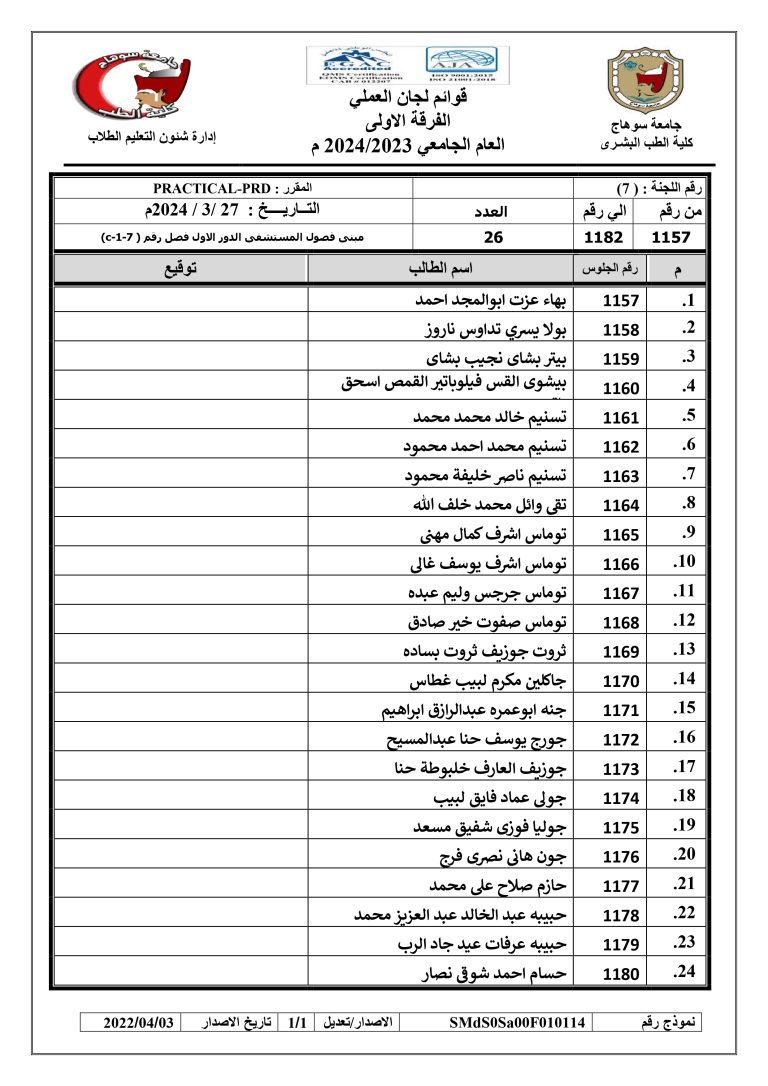 جامعة سوهاج
كلية الطب
إدارة شئون التعليم الطلاب
EGAC
Accredited
QMS Certification
EOHMS Certification
CAB # 012207
AJA
ISO 9001:2015
ISO 21001:2018
قوائم لجان العملي
الفرقة الاولى
العام الجامعي 2024/2023 م
جامعة سوهاج
كلية الطب البشرى
رقم اللجنة : ( 7) المقرر : PRACTICAL-PRD
من رقم الي رقم العدد التــاريـــخ : 27 /3 / 2024م
1157 1182 26 مبنى فصول المستشفى الدور الاول فصل رقم ( 7-1-c)
م رقم الجلوس اسم الطالب توقيع
1. 1157 بهاء عزت ابوالمجد احمد
2. 1158 بولا يسري تداوس ناروز
3. 1159 بيتر بشاى نجيب بشاى
4. 1160 بيشوى القس فيلوباتير القمص اسحق
5. 1161 تسنيم خالد محمد محمد
6. 1162 تسنيم محمد احمد محمود
7. 1163 تسنيم ناصر خليفة محمود
8. 1164 تقى وائل محمد خلف الله
9. 1165 توماس اشرف كمال مهنى
10. 1166 توماس اشرف يوسف غالى
11. 1167 توماس جرجس وليم عبده
12. 1168 توماس صفوت خير صادق
13. 1169 ثروت جوزيف ثروت بساده
14. 1170 جاكلين مكرم لبيب غطاس
15. 1171 جنه ابوعمره عبدالرازق ابراهيم
16. 1172 جورج يوسف حنا عبدالمسيح
17. 1173 جوزيف العارف خلبوطة حنا
18. 1174 جولى عماد فايق لبيب
19. 1175 جوليا فوزى شفيق مسعد
20. 1176 جون هانى نصرى فرج
21. 1177 حازم صلاح على محمد
22. 1178 حبيبه عبد الخالد عبد العزيز محمد
23. 1179 حبيبه عرفات عيد جاد الرب
24. 1180 حسام احمد شوقى نصار
نموذج رقم SMdS0Sa00F010114 الاصدار/تعديل 1/1 تاريخ الاصدار 2022/04/03